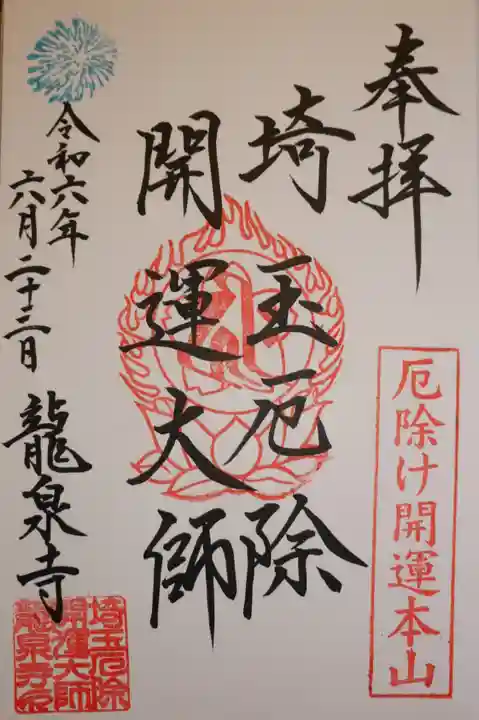 奉拝
厄除け開運本山
埼玉厄除
開運大師
令和六年
六月二十三日
龍泉寺
埼玉厄除
開運大師
龍泉寺印